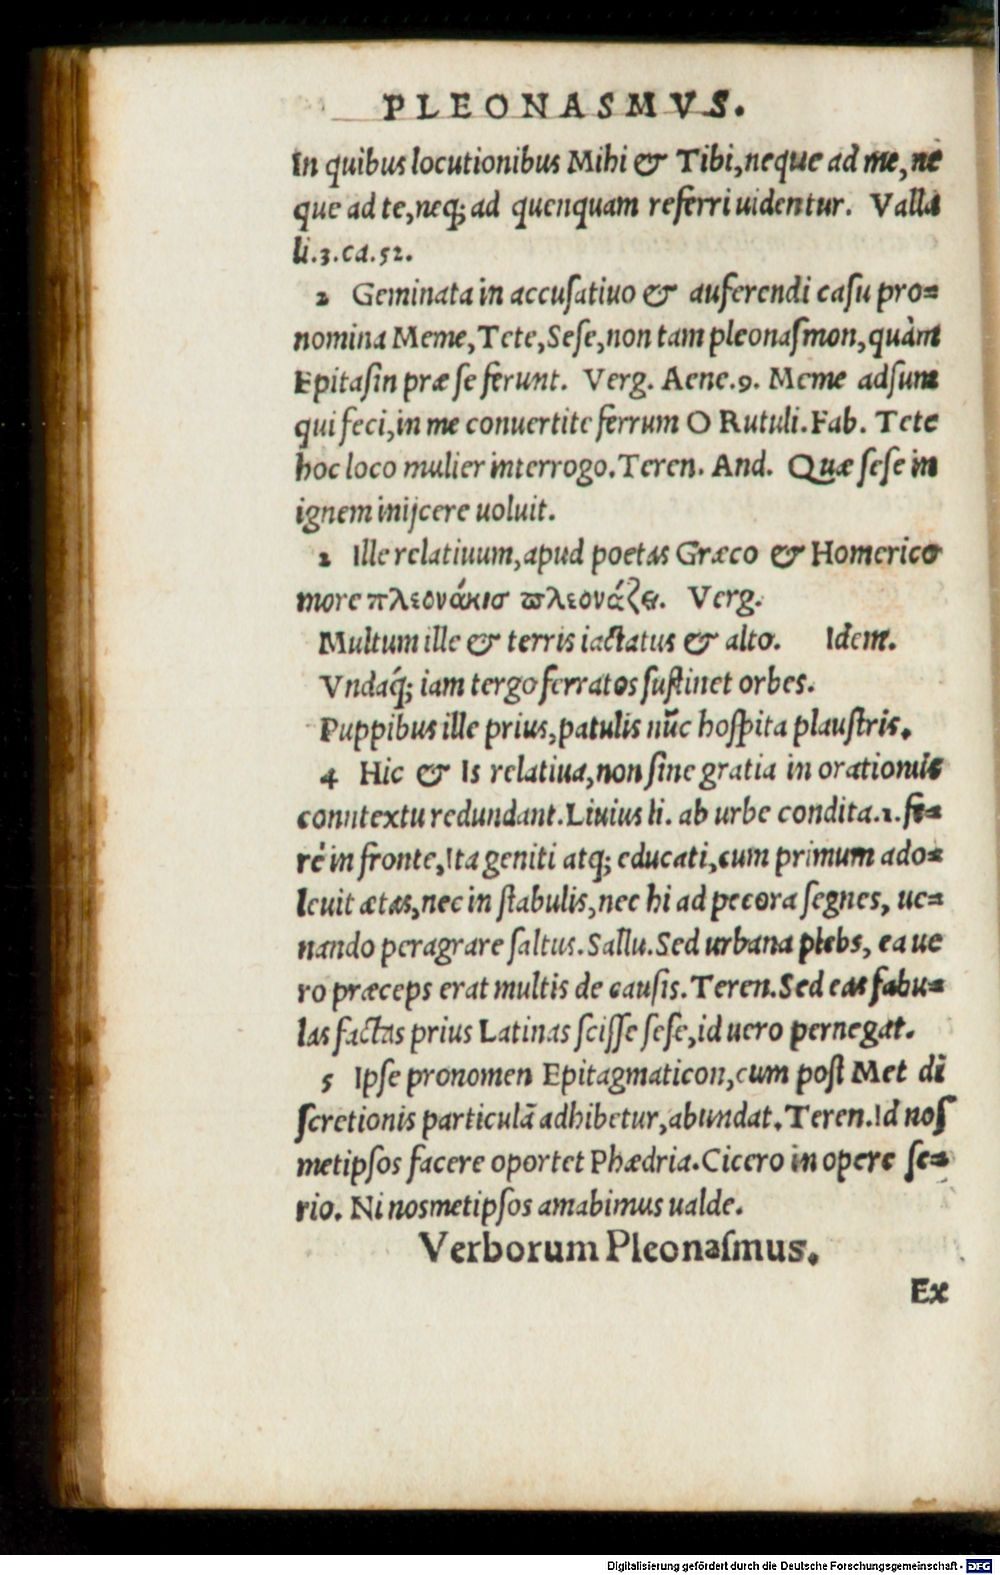 PLEONASMVS.
In quibus locutionibus Mihi & Tibi, neque ad me, ne
que ad te, neq; ad quenquam referri uidentur. Valla
li.3.ca.52.
2 Geminata in accusatiuo & auferendi casu pro=
nomina Meme, Tete, Sese, non tam pleonasmon, quàm
Epitasin præ se ferunt. Verg. Aene.9. Meme adsum
qui feci, in me conuertite ferrum O Rutuli. Fab. Tete
hoc loco mulier interrogo. Teren. And. Quæ sese in
ignem inijcere uoluit.
2 Ille relatiuum, apud poetas Græco & Homerico
more πλεονάκισ ϖλεονάζει. Verg.
Multum ille & terris iactatus & alto. Idem.
Vndaq́; iam tergo ferratos sustinet orbes.
Puppibus ille prius, patulis nūc hospita plaustris.
4 Hic & Is relatiua, non sine gratia in orationis
conntextu redundant. Liuius li. ab urbe condita.1. fe=
rè in fronte, Ita geniti atq; educati, cum primum ado=
leuit ætas, nec in stabulis, nec hi ad pecora segnes, ue=
nando peragrare saltus. Sallu. Sed urbana plebs, ea ue
ro præceps erat multis de causis. Teren. Sed eas fabu=
las factas prius Latinas scisse sese, id uero pernegat.
5 Ipse pronomen Epitagmaticon, cum post Met di
scretionis particulā adhibetur, abundat. Teren. Id nos
metipsos facere oportet Phædria. Cicero in opere se=
rio. Ni nosmetipsos amabimus ualde.
Verborum Pleonasmus.
Ex
Digitalisierung gefördert durch die Deutsche Forschungsgemeinschaft - DFG